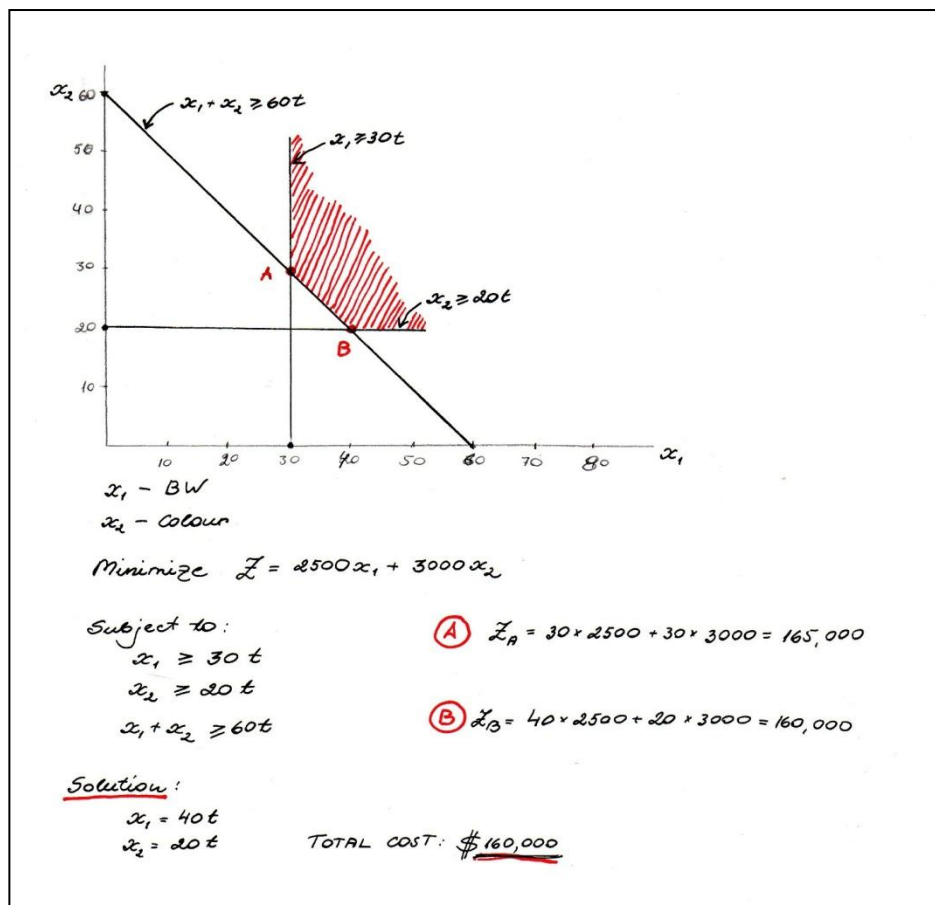 x₂ 60
x₁ + x₂ ≥ 60t
x₁ ≥ 30t
50
40
30
A
x₂ ≥ 20t
20
B
10
10 20 30 40 50 60 70 80 x₁
x₁ - BW
x₂ - Colour
Minimize Z = 2500x₁ + 3000x₂
Subject to:
x₁ ≥ 30 t
x₂ ≥ 20 t
x₁ + x₂ ≥ 60t
A Z_A = 30 × 2500 + 30 × 3000 = 165,000
B Z_B = 40 × 2500 + 20 × 3000 = 160,000
Solution:
x₁ = 40t
x₂ = 20t
TOTAL COST: $160,000